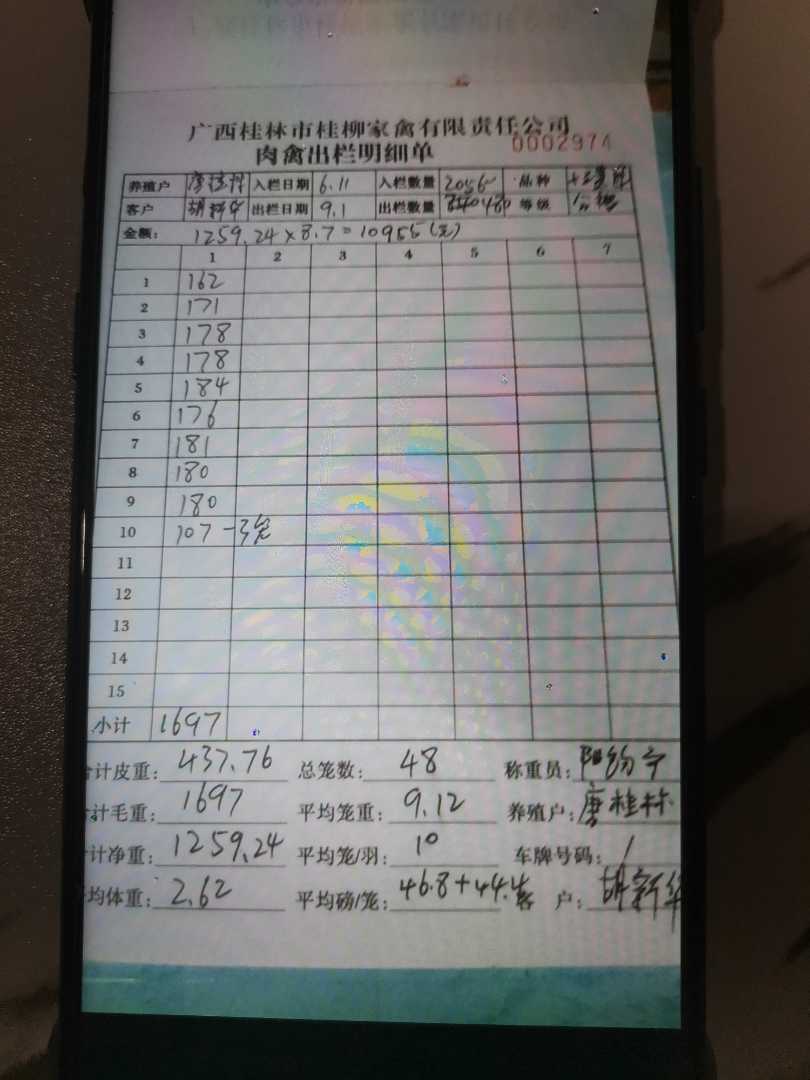 广西桂林市桂柳家禽有限责任公司
肉禽出栏明细单 0002974
养殖户 唐桂林 入栏日期 6.11 入栏数量 2056 品种
客户 胡新华 出栏日期 9.1 出栏数量 480 等级
金额: 1259.24×8.7=10955(元)
1 2 3 4 5 6 7
1 162
2 171
3 178
4 178
5 184
6 176
7 181
8 180
9 180
10 107 -3笼
11
12
13
14
15
小计 1697
计皮重: 437.76 总笼数: 48 称重员:
计毛重: 1697 平均笼重: 9.12 养殖户: 唐桂林
计净重: 1259.24 平均笼/羽: 10 车牌号码: /
均体重: 2.62 平均磅/笼: 46.8+44.4 客 户: 胡新华